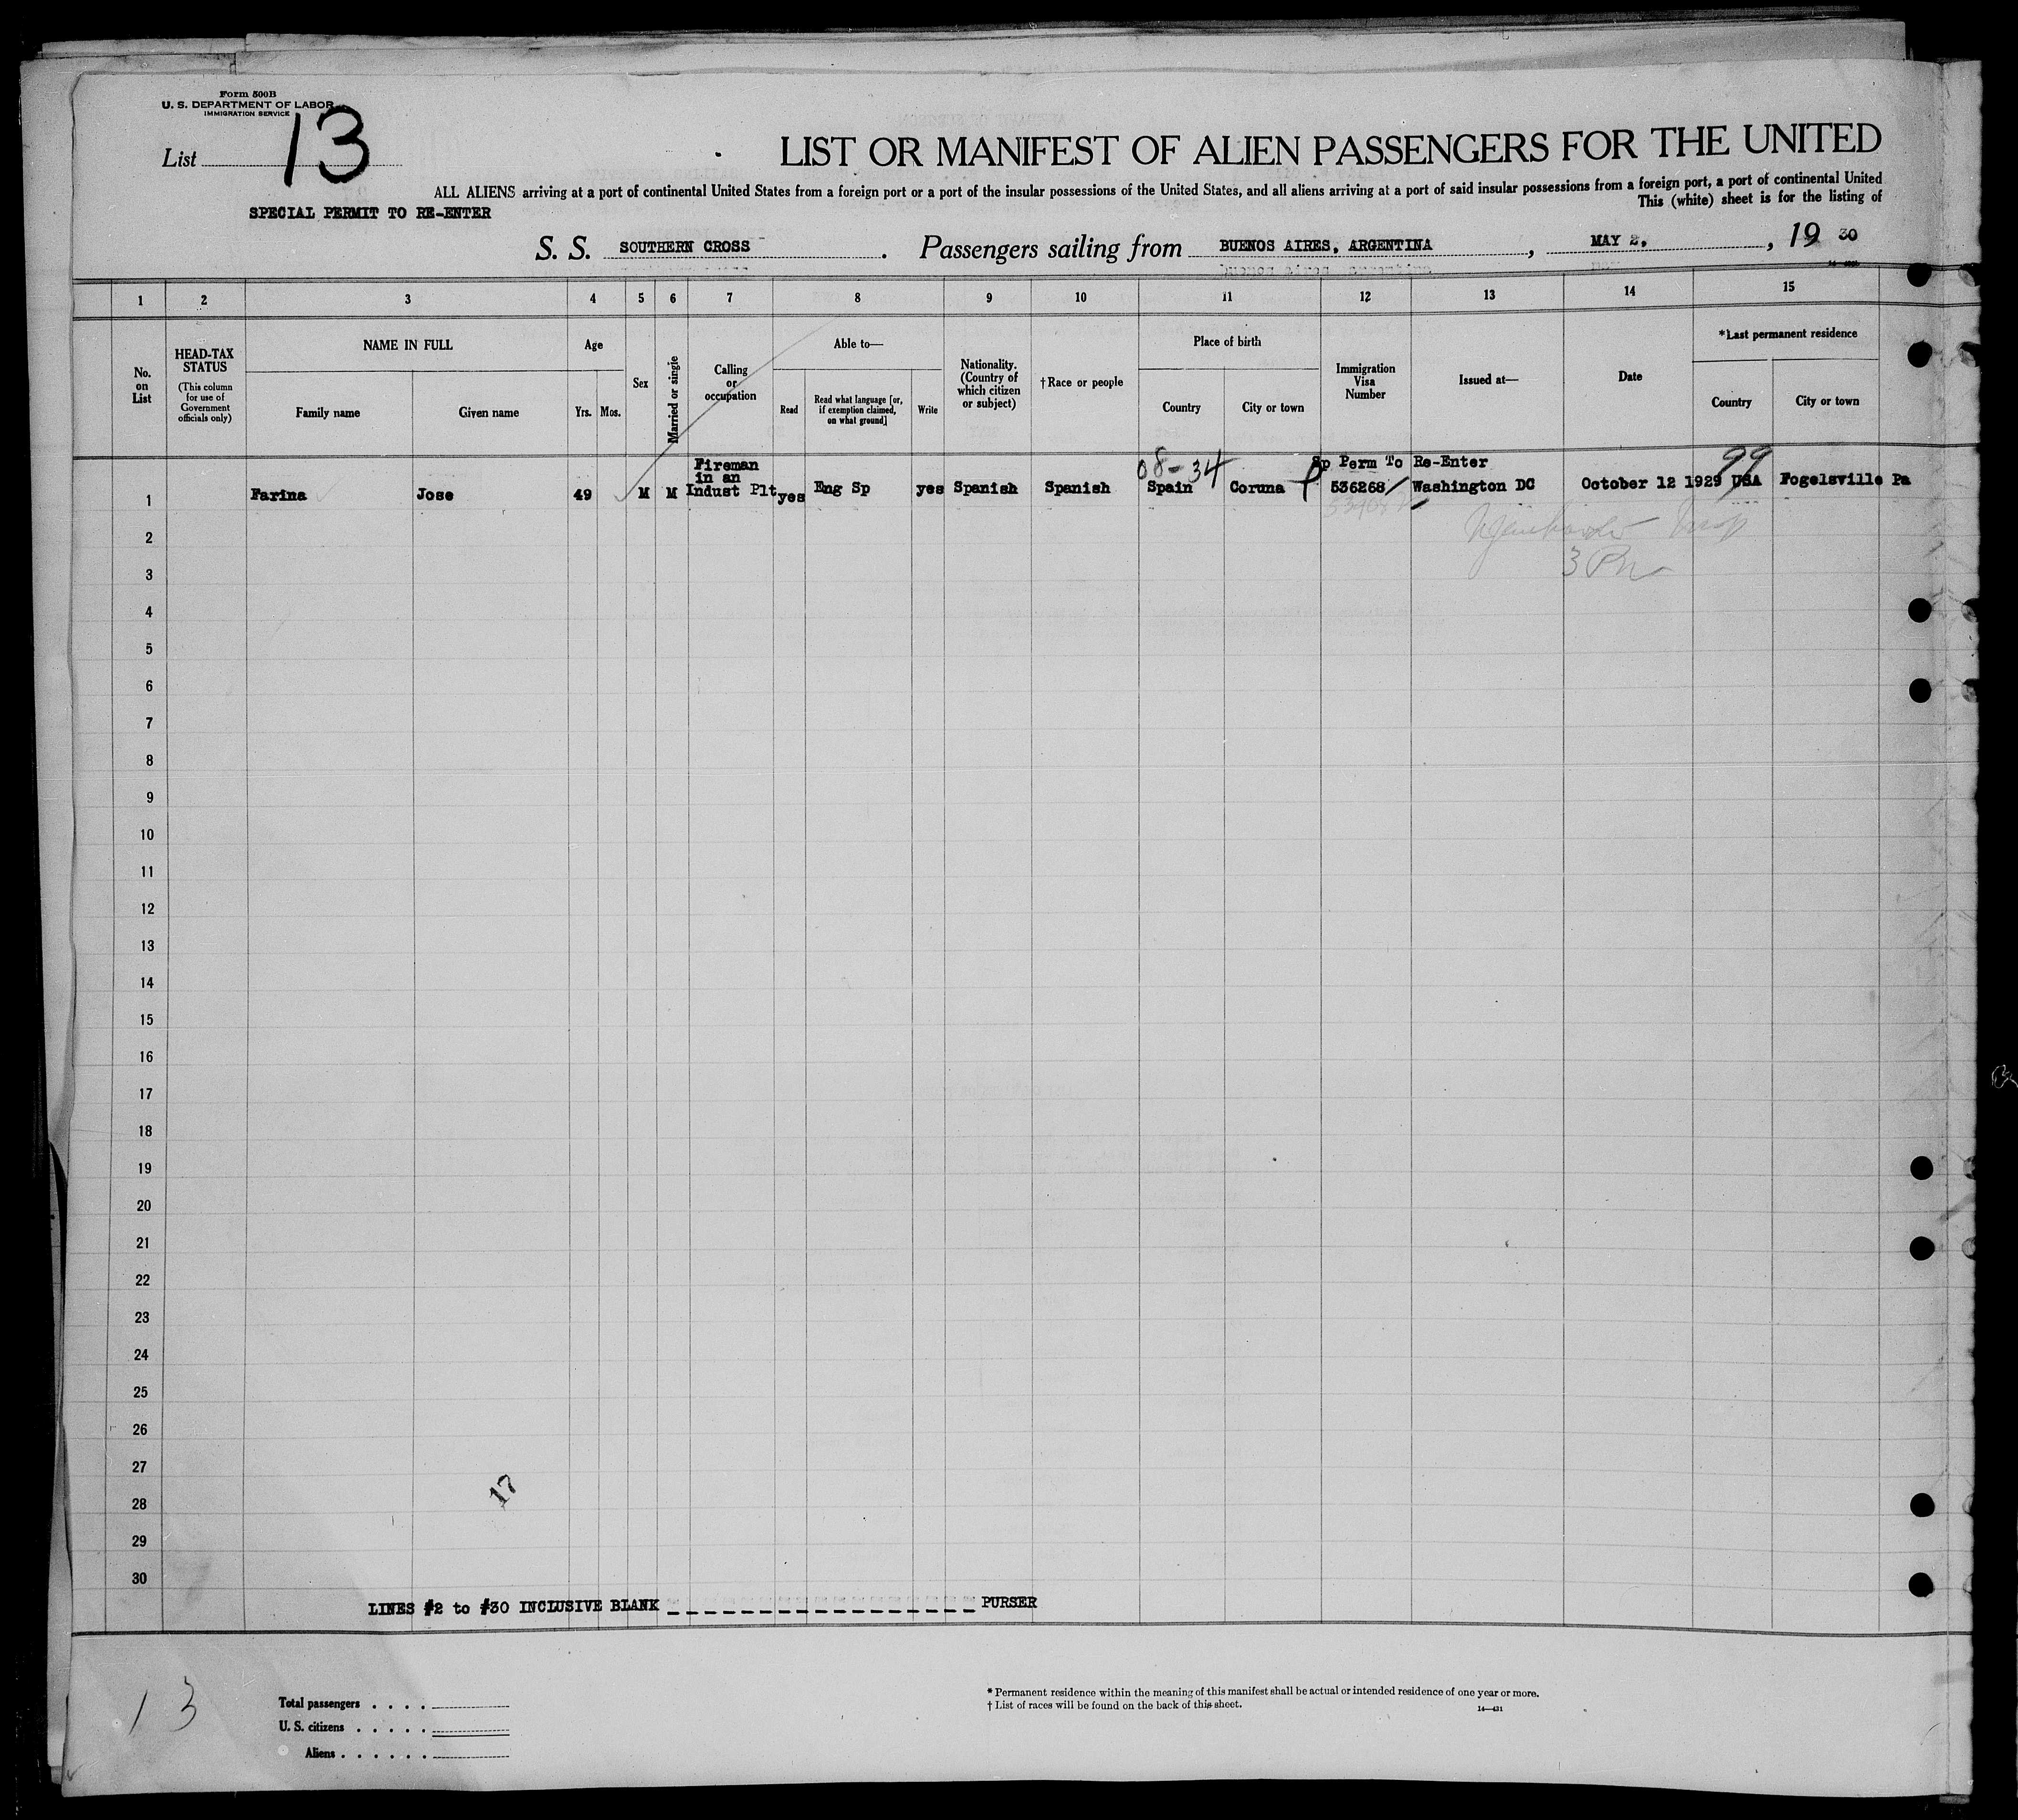 Form 500B
U. S. DEPARTMENT OF LABOR
IMMIGRATION SERVICE
List 13
LIST OR MANIFEST OF ALIEN PASSENGERS FOR THE UNITED
ALL ALIENS arriving at a port of continental United States from a foreign port or a port of the insular possessions of the United States, and all aliens arriving at a port of said insular possessions from a foreign port, a port of continental United
This (white) sheet is for the listing of
SPECIAL PERMIT TO RE-ENTER
S. S. SOUTHERN CROSS . Passengers sailing from BUENOS AIRES, ARGENTINA , MAY 2, , 19 30
1 2 3 4 5 6 7 8 9 10 11 12 13 14 15
No. on List
HEAD-TAX STATUS
(This column for use of Government officials only)
NAME IN FULL
Family name Given name
Age
Yrs. Mos.
Sex
Married or single
Calling or occupation
Able to—
Read
Read what language [or, if exemption claimed, on what ground]
Write
Nationality. (Country of which citizen or subject)
†Race or people
Place of birth
Country City or town
Immigration Visa Number
Issued at—
Date
*Last permanent residence
Country City or town
08-34 99
Fireman Sp Perm To Re-Enter
in an
1 Farina Jose 49 M M Indust Plt yes Eng Sp yes Spanish Spanish Spain Coruna 536268 Washington DC October 12 1929 USA Fogelsville Pa
2
3 3 PM
4
5
6
7
8
9
10
11
12
13
14
15
16
17
18
19
20
21
22
23
24
25
26
27
17
28
29
30
LINES #2 to #30 INCLUSIVE BLANK _ _ _ _ _ _ _ _ _ _ _ _ _ _ _ _ _ PURSER
13
Total passengers . . . .
U. S. citizens . . . . .
Aliens . . . . . .
* Permanent residence within the meaning of this manifest shall be actual or intended residence of one year or more.
† List of races will be found on the back of this sheet.
14—431